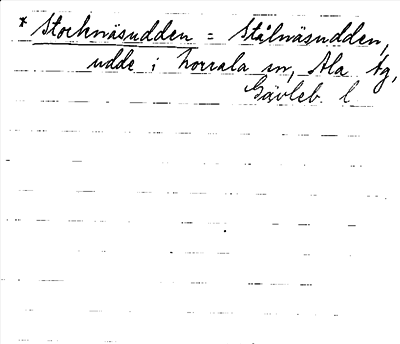 * Stocknäsudden = Stålnäsudden,
udde i Norrala sn, Ala tg,
Gävleb. l